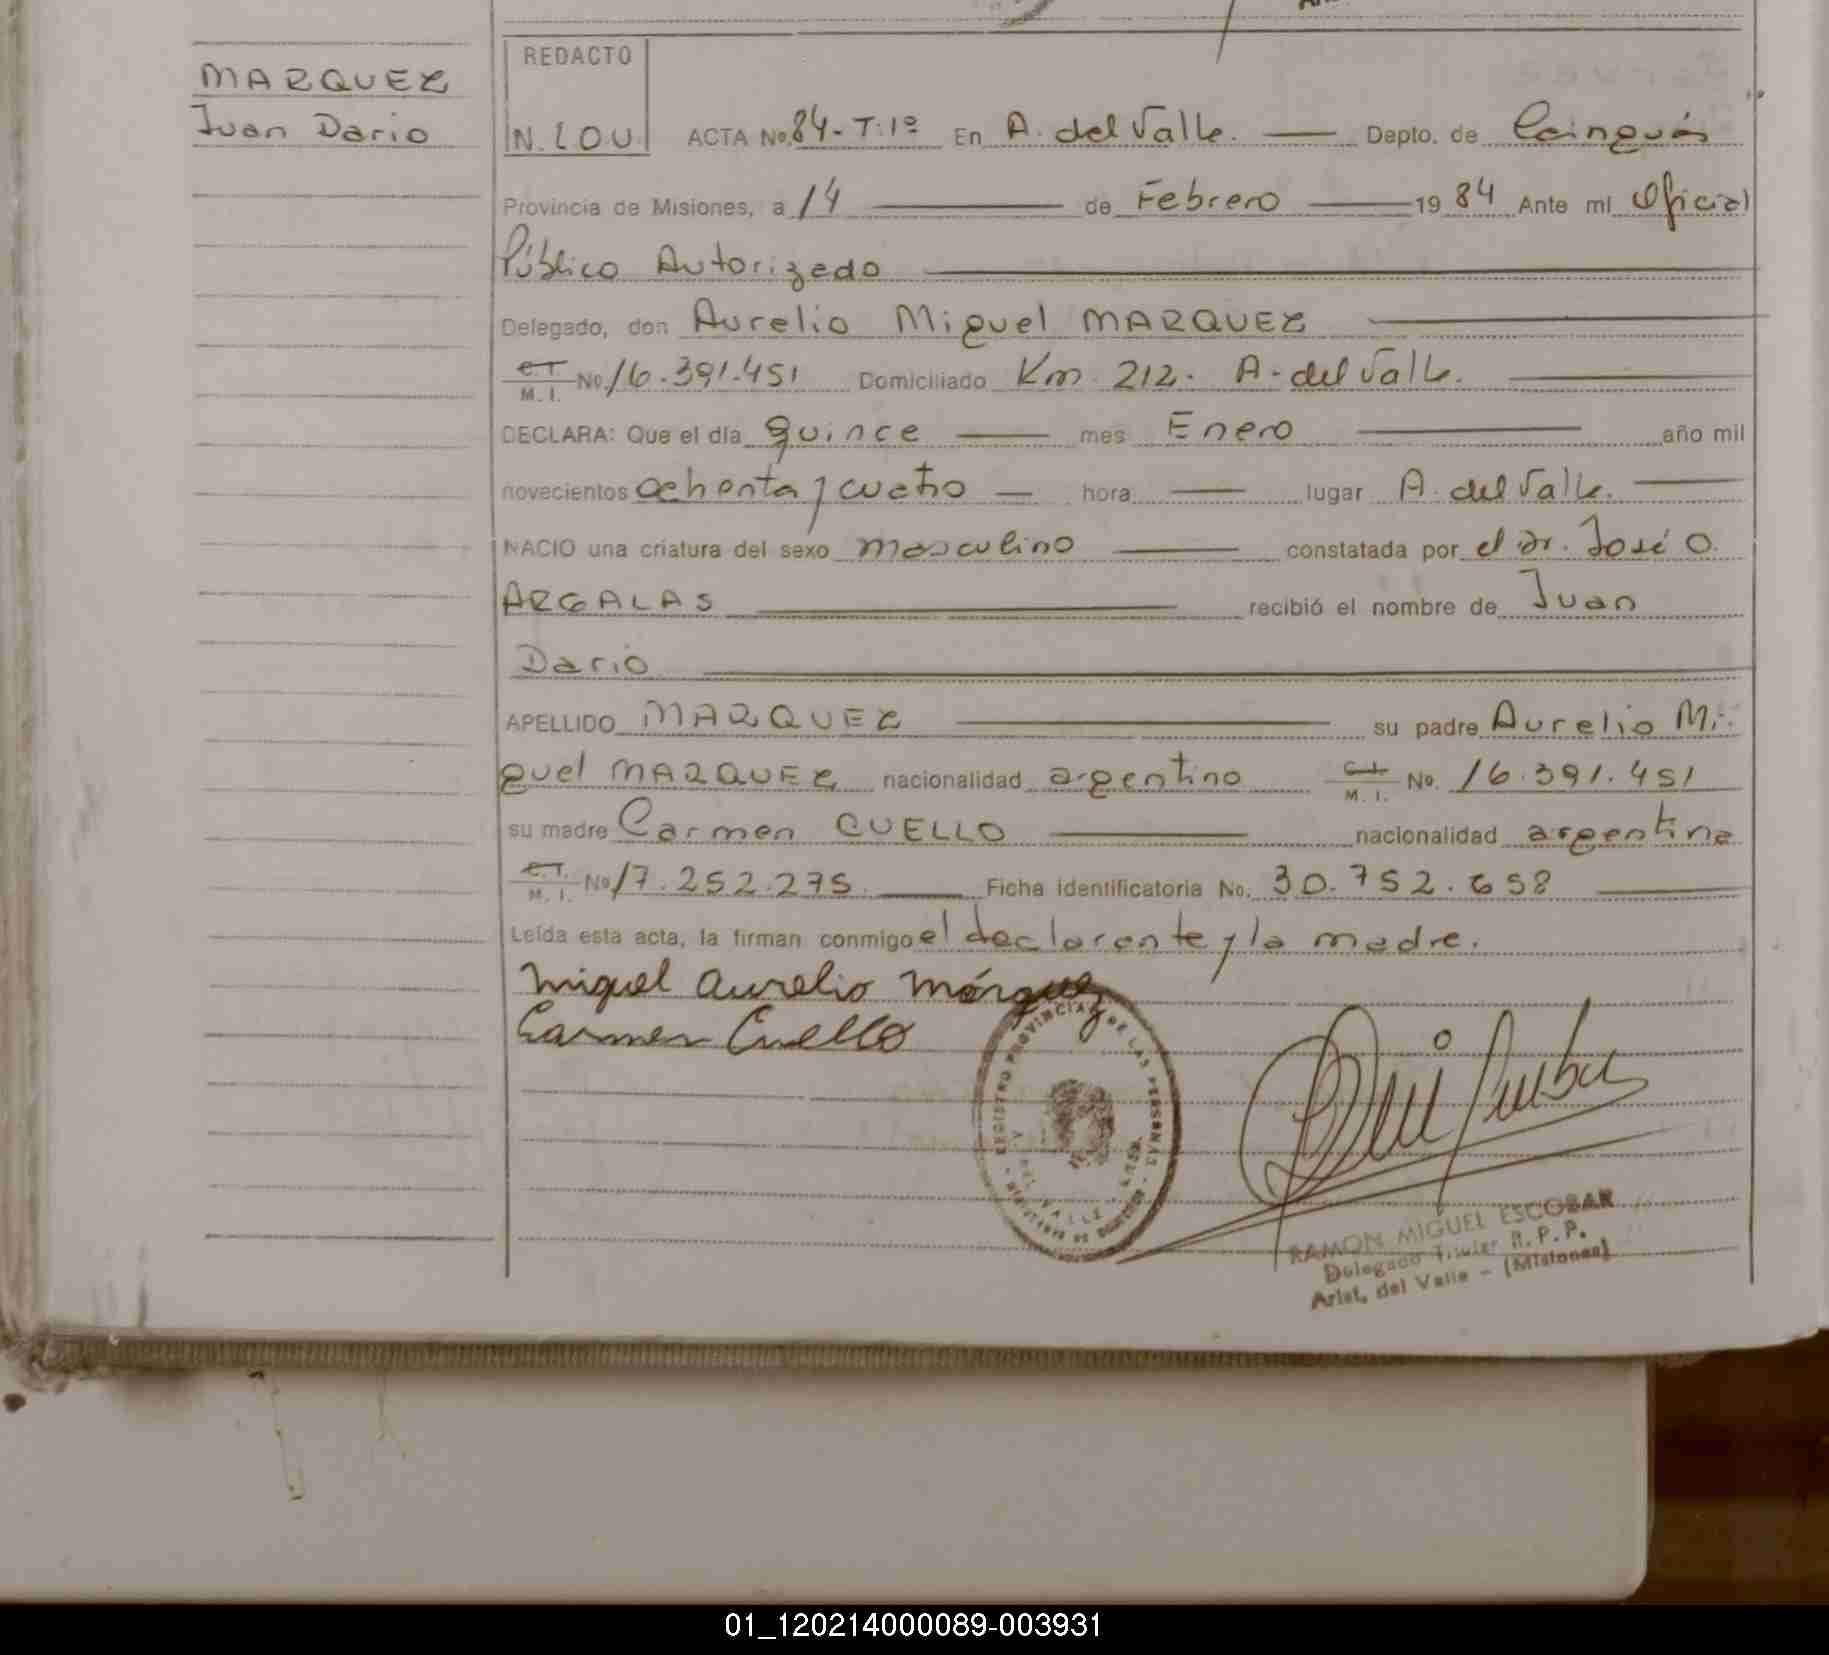 MARQUEZ
Juan Dario
REDACTO
N. LOU
ACTA No. 84-T:1º En A. del Valle. Depto. de Cainguás
Provincia de Misiones, a 14 de Febrero 1984 Ante mi Oficial
Público Autorizado
Delegado, don Aurelio Miguel MARQUEZ
C.I. M.I. No. 16.391.451 Domiciliado Km. 212. A. del Valle.
DECLARA: Que el día quince mes Enero año mil
novecientos ochenta y cuatro hora lugar A. del Valle.
NACIO una criatura del sexo masculino constatada por el Dr. José O.
ARGALAS recibió el nombre de Juan
Dario
APELLIDO MARQUEZ su padre Aurelio Mi-
guel MARQUEZ nacionalidad argentino C.I. M.I. No. 16.391.451
su madre Carmen CUELLO nacionalidad argentina
C.I. M.I. No 17.252.275. Ficha identificatoria No. 30.752.658
Leída esta acta, la firman conmigo el declarante y la madre.
Miguel Aurelio Márquez
Carmen Cuello
REGISTRO PROVINCIAL DE LAS PERSONAS
A. DEL VALLE
RAMON MIGUEL ESCOBAR
Delegado Titular R.P.P.
Arist. del Valle - (Misiones)
01_120214000089-003931